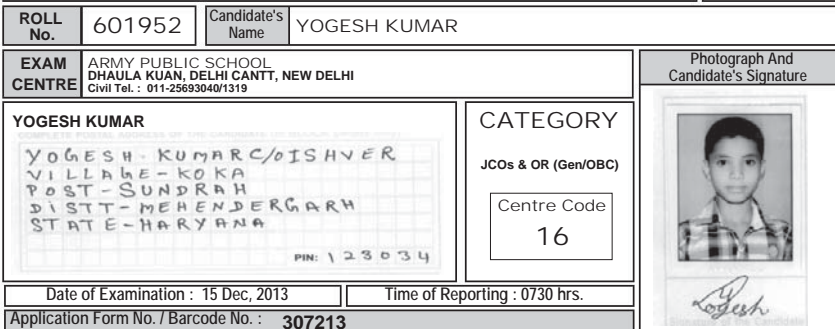 ROLL No. 601952 Candidate's Name YOGESH KUMAR
EXAM CENTRE ARMY PUBLIC SCHOOL
DHAULA KUAN, DELHI CANTT, NEW DELHI
Civil Tel. : 011-25693040/1319
Photograph And
Candidate's Signature
YOGESH KUMAR
COMPLETE POSTAL ADDRESS OF THE CANDIDATE IN BLOCK
YOGESH KUMAR C/O ISHVER
VILLAGE-KOKA
POST-SUNDRAH
DISTT-MEHENDERGARH
STATE-HARYANA
PIN: 123034
CATEGORY
JCOs & OR (Gen/OBC)
Centre Code
16
Yogesh
Signature of the Candidate
Date of Examination : 15 Dec, 2013 Time of Reporting : 0730 hrs.
Application Form No. / Barcode No. : 307213